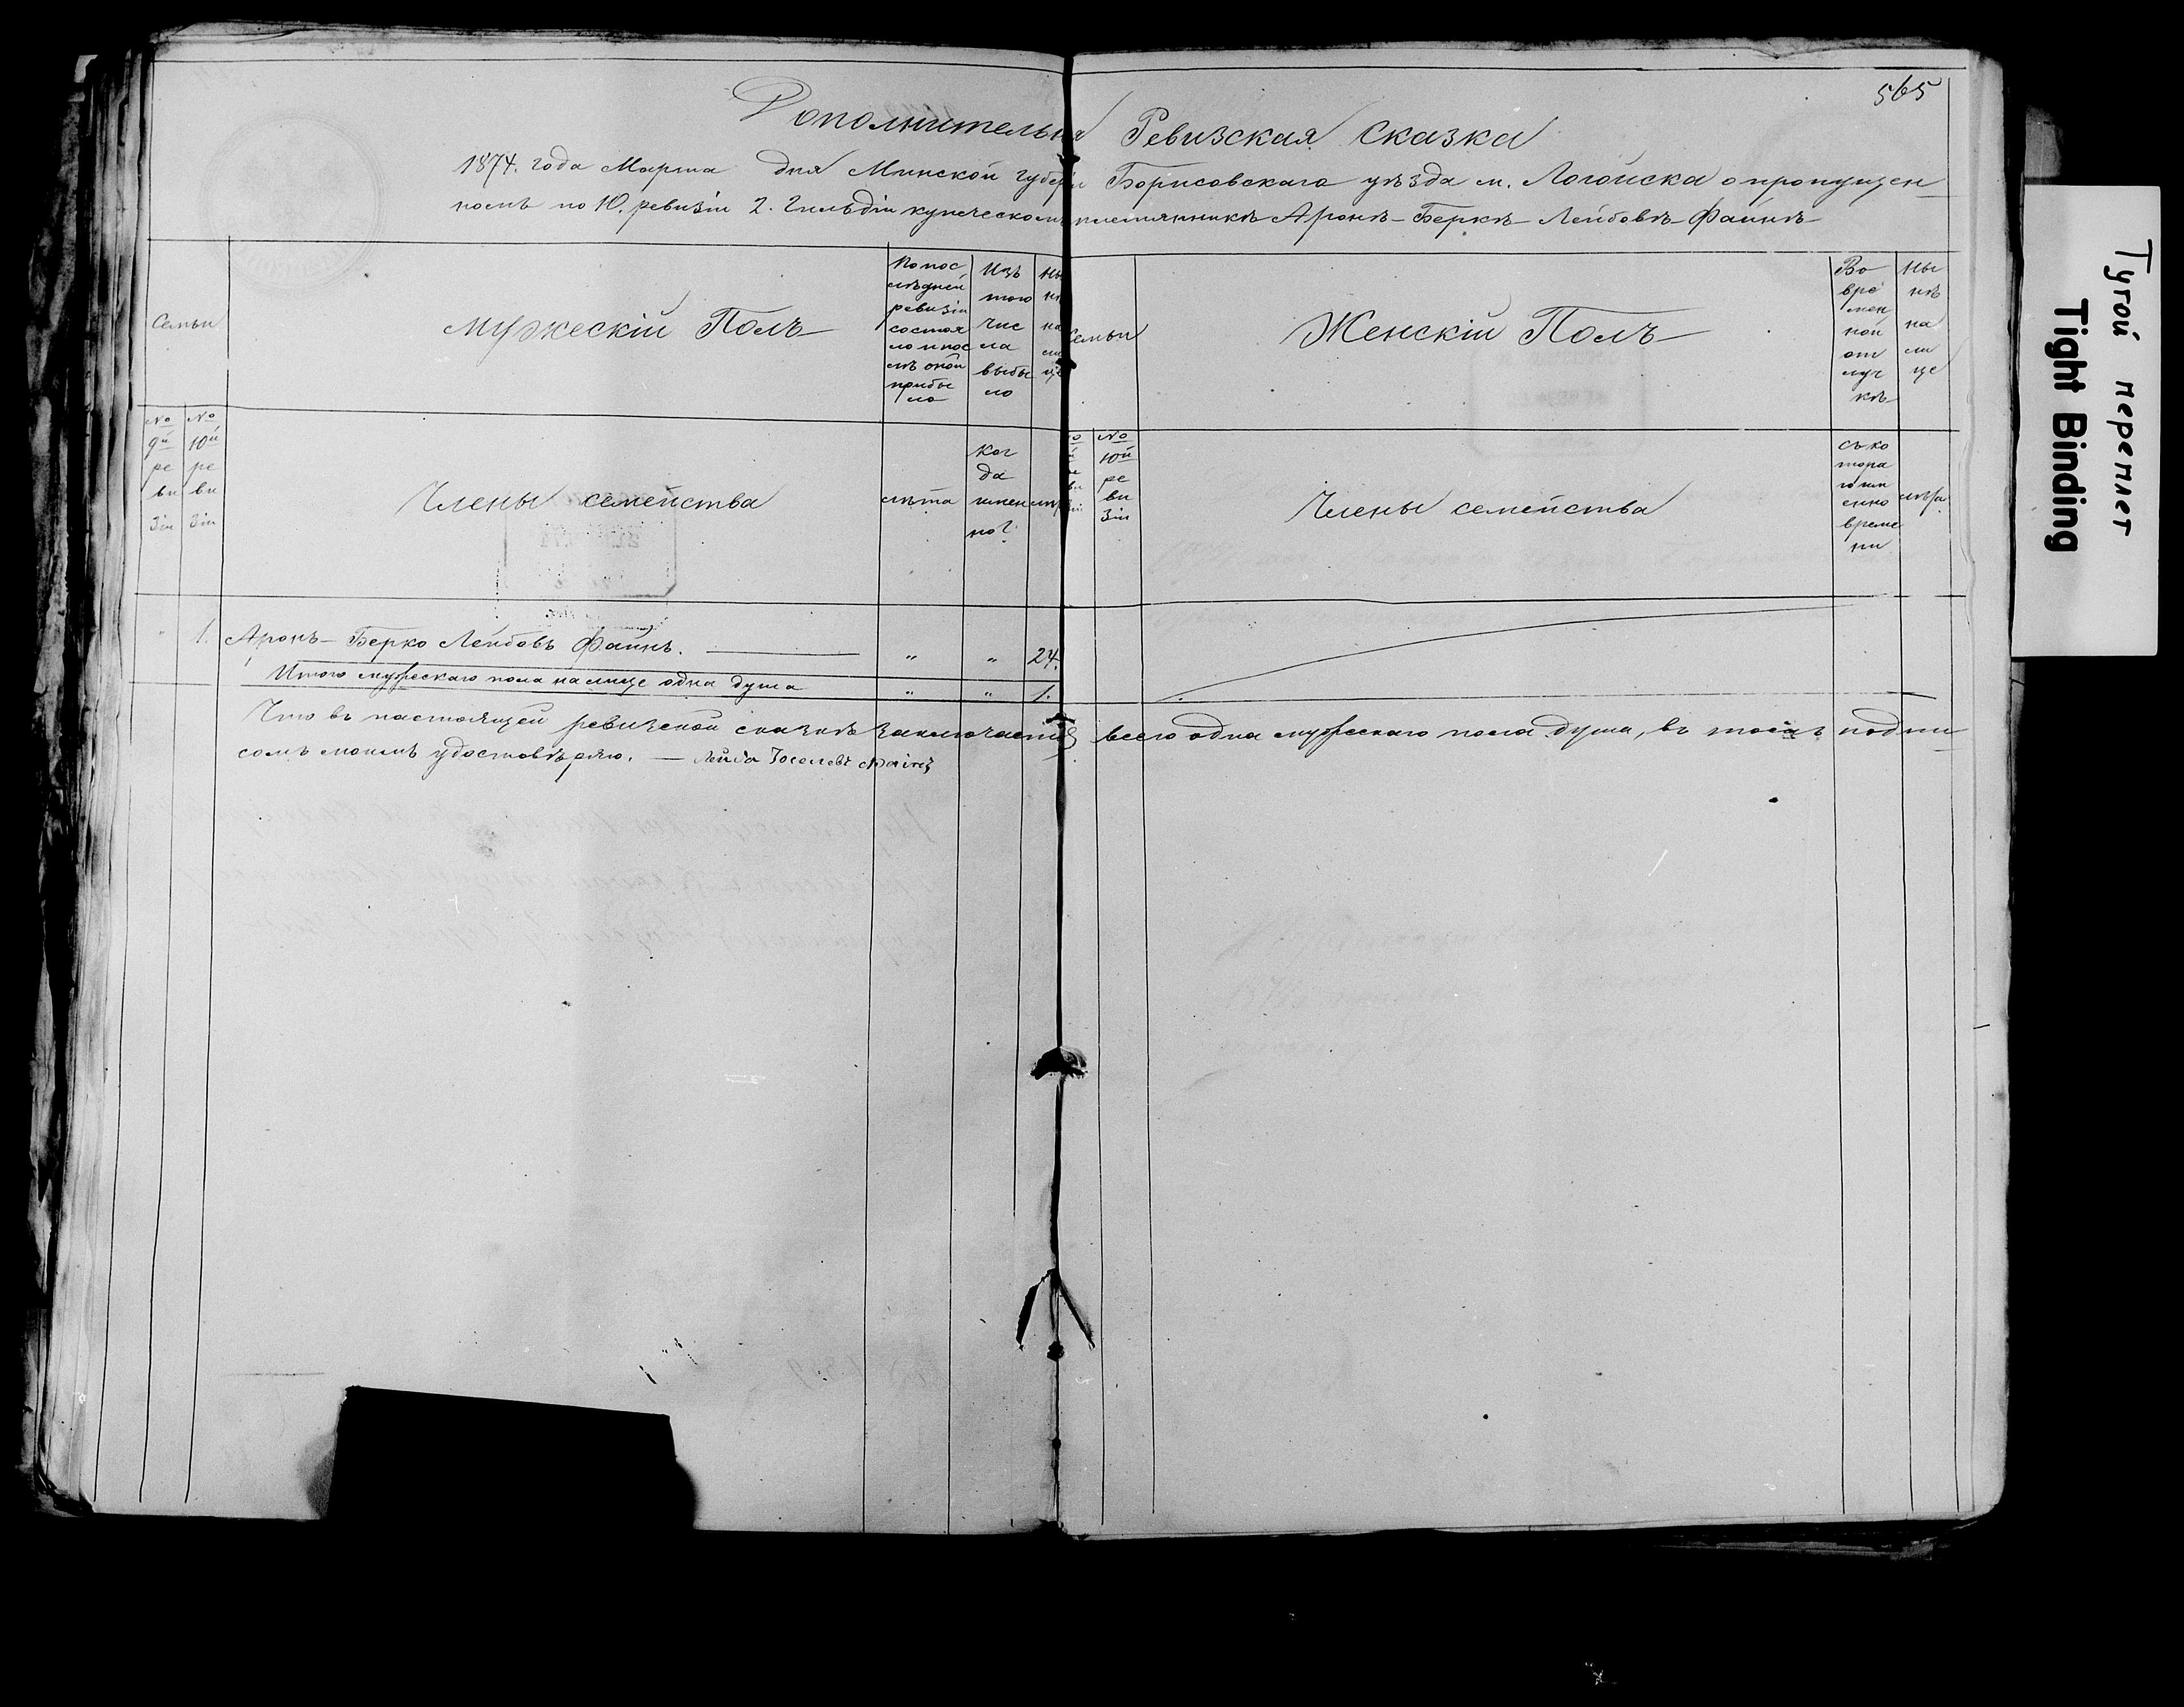 565
Дополнительная Ревизская Сказка
1874. года Марта дня Минской губерніи Борисовскаго уѣзда м. Логойска о пропущен
номъ по 10. ревизіи 2. Гильдіи купеческомъ племянникѣ Аронѣ-Беркѣ Лейбовѣ Файнѣ
Семьи
Мужескій Полъ
По пос
лѣдней
ревизіи
состоя
ло и пос
лѣ оной
прибы
ло
Изъ
того
чис
ла
выбы
ло
Ны
нѣ
на
ли
це
Семьи
Женскій Полъ
Во
вре
мен
ной
от
луч
кѣ
Ны
нѣ
на
ли
це
№
9й
ре
ви
зіи
№
10й
ре
ви
зіи
Члены семейства
лѣта
ког
да
имен
но?
лѣта
№
10й
ре
ви
зіи
Члены семейства
съ ко
тора
го им
енно
време
ни
лѣта
" 1. Аронъ-Берко Лейбовъ Файнъ. " " 24.
Итого мужескаго пола на лице одна душа " " 1.
Что въ настоящей ревизской сказкѣ заключается всего одна мужескаго пола душа, въ томъ подпи
сомъ моимъ удостовѣряю. — Лейба Іоселевъ Файнъ
Тугой переплет
Tight Binding